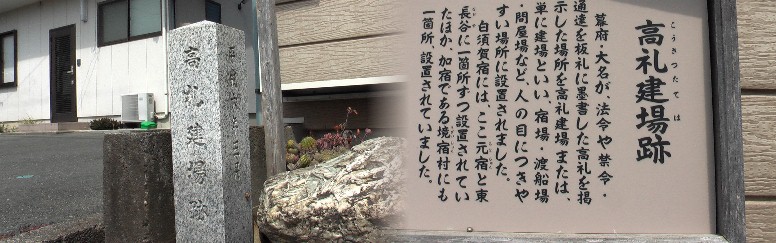 高札建場跡
高札建場跡
こうさつたてば
幕府・大名が、法令や禁令・
通達を板札に墨書した高札を掲
示した場所を高札建場または、
単に建場といい、宿場・渡船場
・問屋場など、人の目につきや
すい場所に設置されました。
白須賀宿には、ここ元宿と東
長谷に一箇所ずつ設置されてい
たほか、加宿である境宿村にも
一箇所、設置されていました。